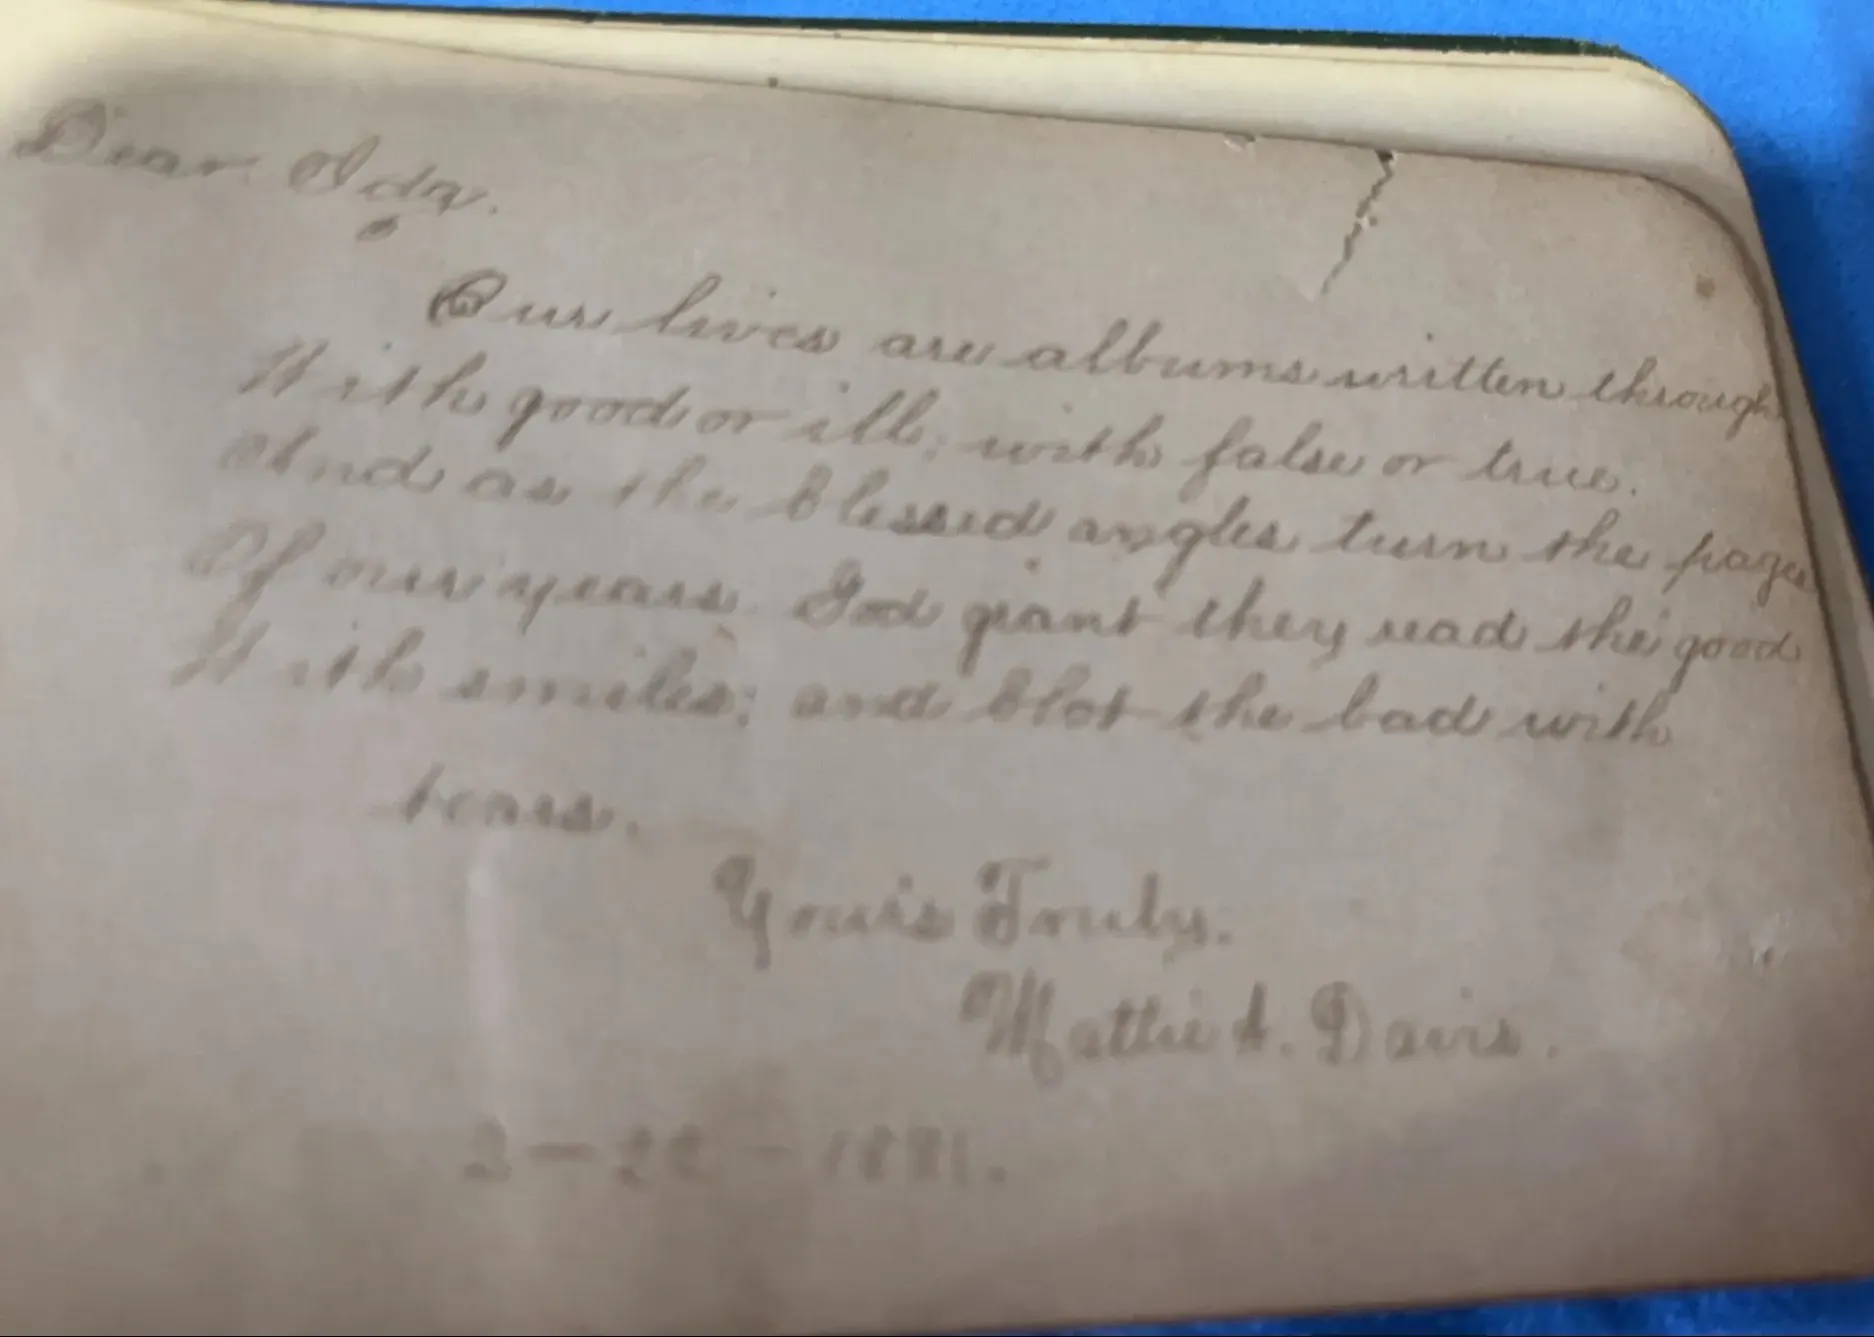 Dear Ida.
Our lives are albums written through
With good or ill; with false or true.
And as the blessed angles turn the pages
Of our years. God grant they read the good
With smiles; and blot the bad with
tears.
Yours Truly.
Mattie A. Davis.
2 – – 1881.